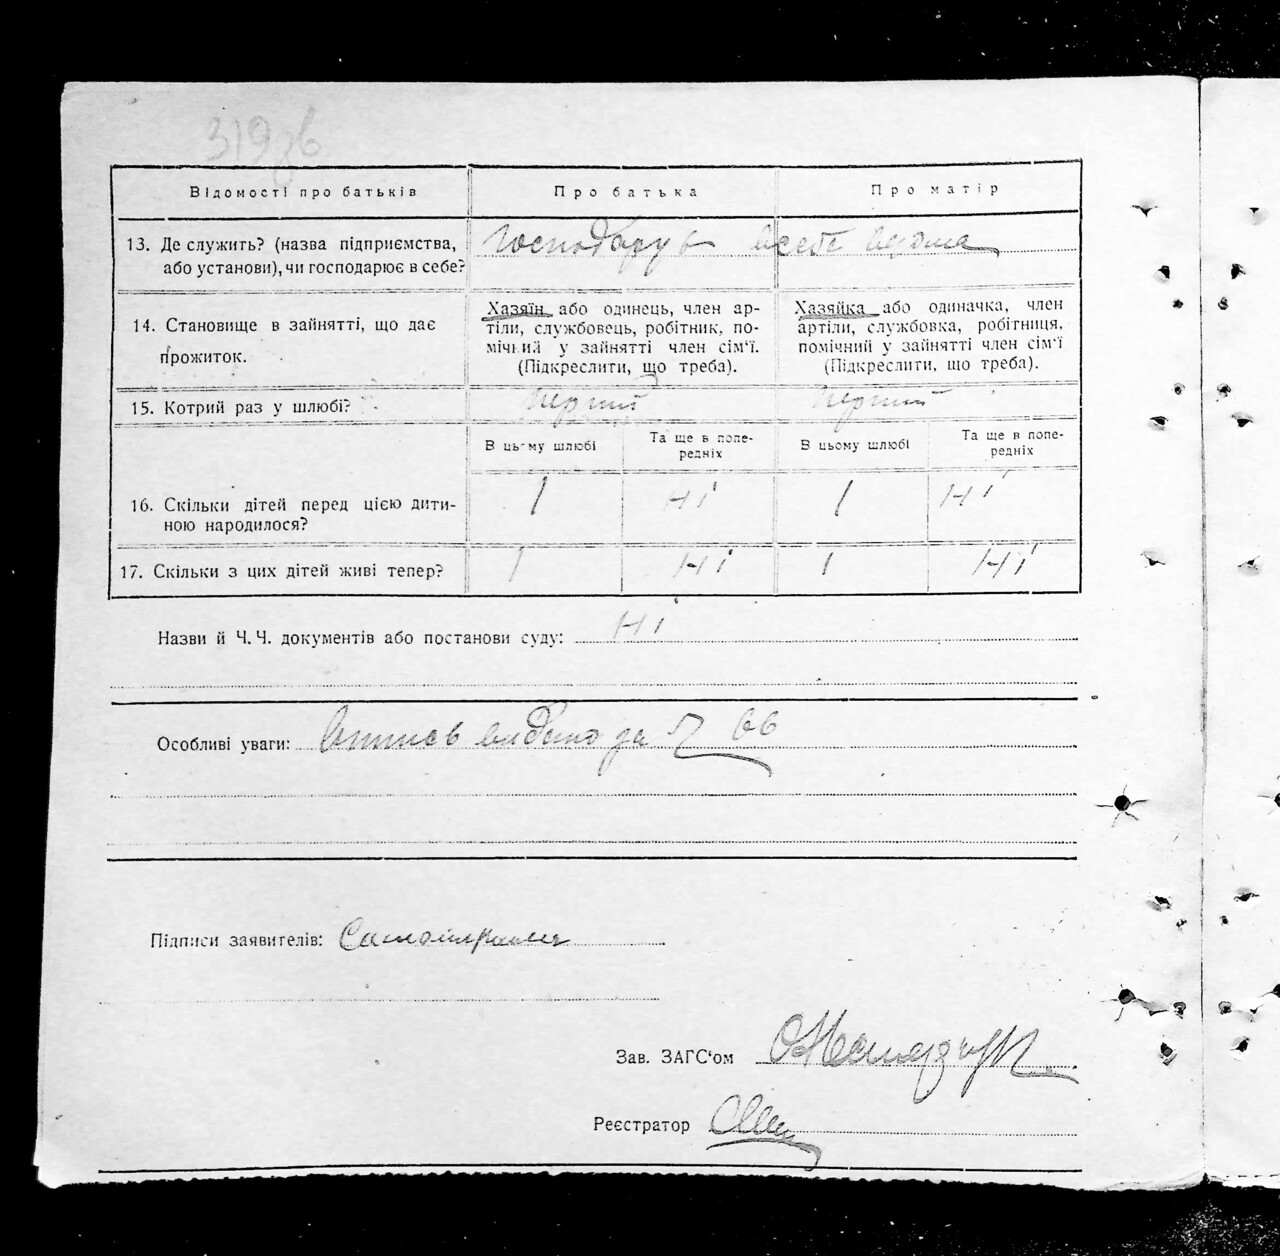 319зв
Відомості про батьків
Про батька
Про матір
13. Де служить? (назва підприємства,
або установи), чи господарює в себе?
Господарує в себе вдома
14. Становище в зайнятті, що дає
прожиток.
Хазяїн або одинець, член ар-
тіли, службовець, робітник, по-
мічний у зайнятті член сім'ї.
(Підкреслити, що треба).
Хазяйка або одиначка, член
артіли, службовка, робітниця,
помічний у зайнятті член сім'ї
(Підкреслити, що треба).
15. Котрий раз у шлюбі?
перший
перший
В цьому шлюбі
Та ще в попе-
редніх
В цьому шлюбі
Та ще в попе-
редніх
16. Скільки дітей перед цією дити-
ною народилося?
1
ні
1
ні
17. Скільки з цих дітей живі тепер?
1
ні
1
ні
Назви й Ч. Ч. документів або постанови суду: ні
Особливі уваги: видано за 66
Підписи заявителів:
Зав. ЗАГС'ом
Реєстратор